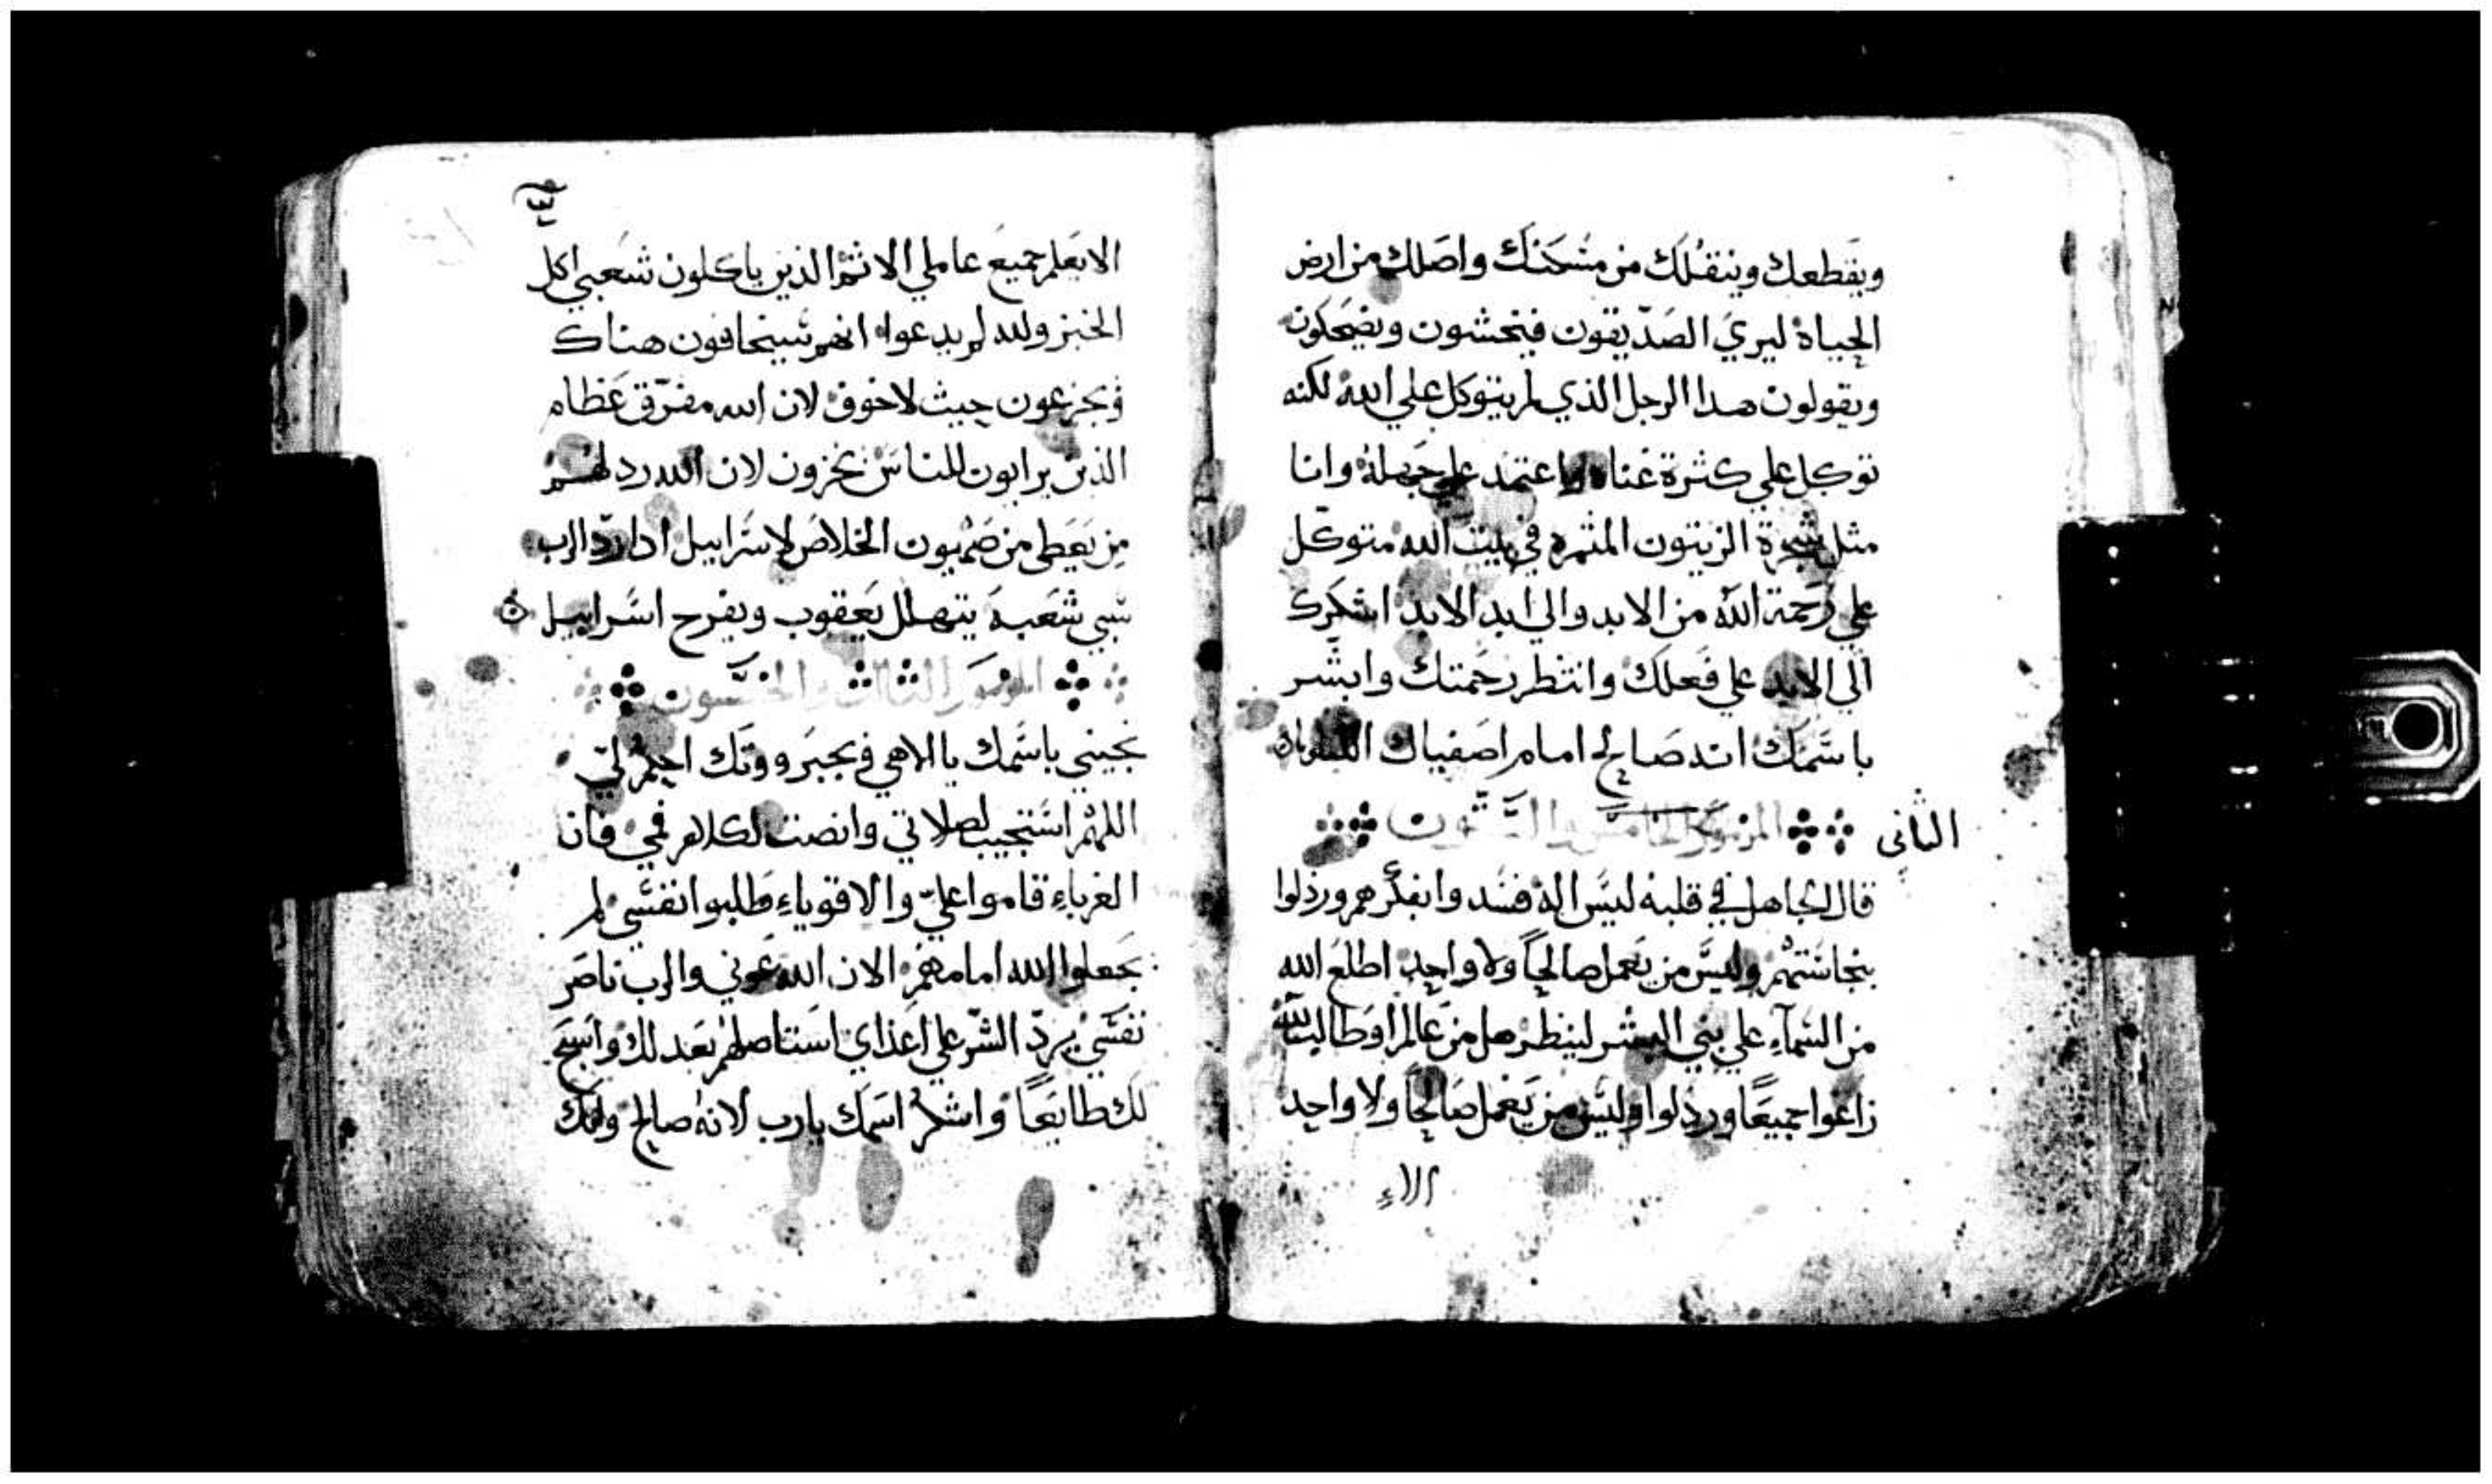 ويقطعك وينقلك من مسكنك واصلك من ارض
الحياة ليري الصديقون فيخشون ويضحكون
ويقولون هدا الرجل الذي لم يتوكل علي الله لكنه
توكل علي كثرة غناه واعتمد علي جهله وانا
مثل شجرة الزيتون المثمره في بيت الله متوكل
علي رحمة الله من الابد والي ابد الابد اشكرك
الي الابد علي فعلك وانتظر رحمتك وابشر
باسمك انه صالح امام اصفياك
الثاني المزمور والخمسون
قال الجاهل في قلبه ليس اله فسد وابفكرهم ورذلوا
بنجاستهم وليس من يعمل صالحاً ولا واحد اطلع الله
من السمآءِ علي بني البشر لينظر هل من عالم او طالب لله
زاغوا جميعًا وردلوا وليس من يعمل صالحًا ولا واحد
الاءِ
الا يعلم جميع عاملي الاثم الذين ياكلون شعبي اكل
الخبز ولله لم يدعوا انهم سيخافون هناك
ويجزعون حيث لاخوف لان الله مفرّق عظام
الذين يرايون للناس يخزون لان الله رد لهم
من يعطي من صهيون الخلاص لاسراييل ادا ردّ الرب
سبي شعبه يتهلل يعقوب ويفرح اسراييل
المزمور الثالث والخمسون
نجيني باسمك يا الاهي في بجبرووتك احكم لي
اللهم استجيب لصلاتي وانصت لكلام في فان
الغرباءِ قاموا عليّ والاقوياءِ طلبوا نفسي لم
يجعلوا الله امامهم الان الله عوني والرب ناصر
نفسي يردّ الشرّ علي اعداي استاصلهم بعدلك واسبح
لك طايعًا واشكر اسمك يارب لانه صالح